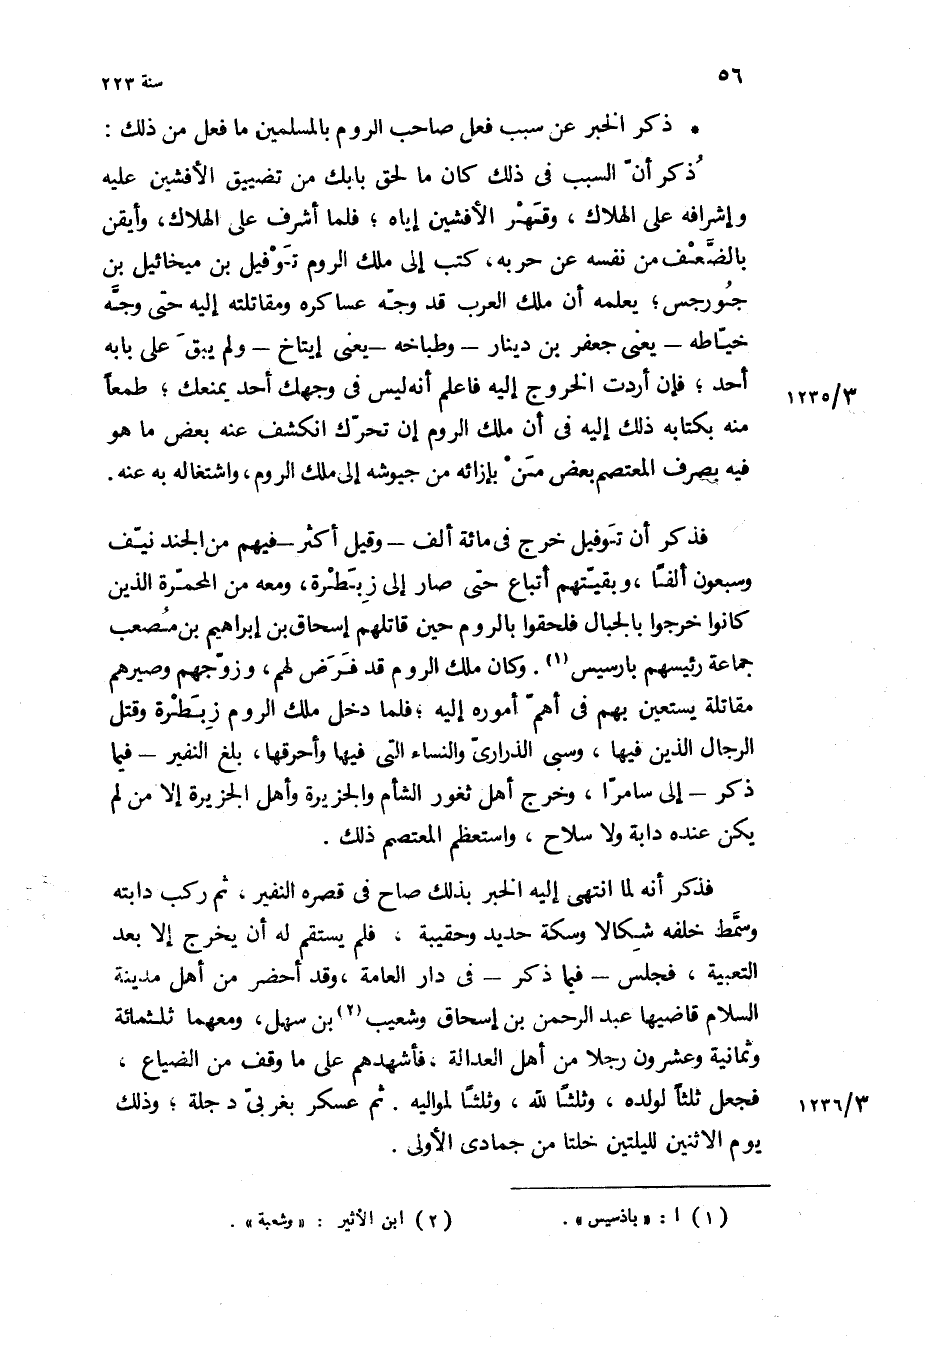 ٥٦
سنة ٢٢٣
* ذكر الخبر عن سبب فعل صاحب الروم بالمسلمين ما فعل من ذلك :
ذُكر أنّ السبب فى ذلك كان ما لحق بابك من تضييق الأفشين عليه
وإشرافه على الهلاك ، وقَهْر الأفشين إياه ؛ فلما أشرف على الهلاك، وأيقن
بالضَّعْف من نفسه عن حربه، كتب إلى ملك الروم تَوْفيل بن ميخائيل بن
جُورجس؛ يعلمه أن ملك العرب قد وجّه عساكره ومقاتلته إليه حتى وجَّه
خيّاطه – يعنى جعفر بن دينار – وطباخه –يعنى إيتاخ – ولم يبقَ على بابه
أحد ؛ فإن أردت الخروج إليه فاعلم أنه ليس فى وجهك أحد يمنعك ؛ طمعاً
١٢٣٥/٣
منه بكتابه ذلك إليه فى أن ملك الروم إن تحرّك انكشف عنه بعض ما هو
فيه بصرف المعتصم بعض مَنْ بإزائه من جيوشه إلى ملك الروم، واشتغاله به عنه.
فذكر أن تَوفيل خرج فى مائة ألف – وقيل أكثر – فيهم من الجند نيّف
وسبعون ألفًا ، وبقيّتهم أتباع حتى صار إلى زِبَطْرة، ومعه من المحمّرة الذين
كانوا خرجوا بالجبال فلحقوا بالروم حين قاتلهم إسحاق بن إبراهيم بن مُصعب
جماعة رئيسهم بارسيس (١) . وكان ملك الروم قد فَرَض لهم، وزوّجهم وصيرهم
مقاتلة يستعين بهم فى أهمّ أموره إليه ؛ فلما دخل ملك الروم زِبَطْرة وقتل
الرجال الذين فيها ، وسبى الذرارىّ والنساء التى فيها وأحرقها، بلغ النفير – فيما
ذكر – إلى سامرّا ، وخرج أهل ثغور الشأم والجزيرة وأهل الجزيرة إلا من لم
يكن عنده دابة ولا سلاح ، واستعظم المعتصم ذلك .
فذكر أنه لما انتهى إليه الخبر بذلك صاح فى قصره النفير ، ثم ركب دابته
وسمَّط خلفه شِكالا وسكة حديد وحقيبة ، فلم يستقم له أن يخرج إلا بعد
التعبية ، فجلس – فيما ذكر – فى دار العامة ،وقد أحضر من أهل مدينة
السلام قاضيها عبد الرحمن بن إسحاق وشعيب (٢) بن سهل، ومعهما ثلثمائة
وثمانية وعشرون رجلا من أهل العدالة ، فأشهدهم على ما وقف من الضياع ،
فجعل ثلثاً لولده ، وثلثًا لله ، وثلثًا لمواليه . ثم عسكر بغربىّ دجلة ؛ وذلك
١٢٣٦/٣
يوم الاثنين لليلتين خلتا من جمادى الأولى .
(١) ا : « باذسيس » .
(٢) ابن الأثير : « وشعبة » .